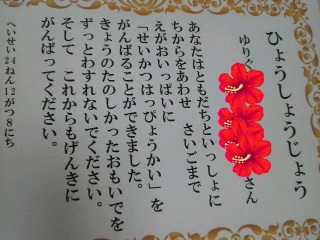 ひょうしょうじょう
ゆりぐ
さん
あなたはともだちといっしょに
ちからをあわせ　さいごまで
えがおいっぱいに
「せいかつはっぴょうかい」を
がんばることができました。
きょうのたのしかったおもいでを
ずっとわすれないでください。
そして　これからもげんきに
がんばってください。
へいせい24ねん12がつ8にち